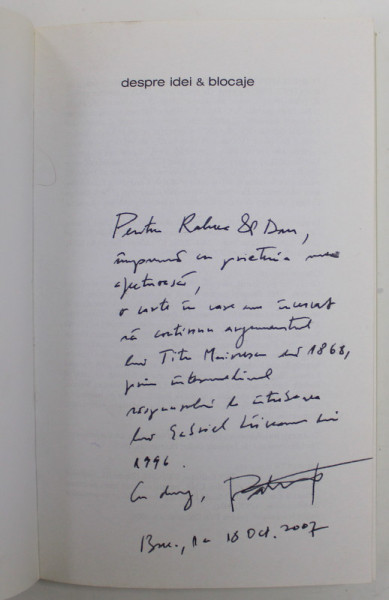 despre idei & blocaje
Pentru Raluca & Dan,
împreună cu prietenia mea
afectuoasă,
o carte în care am încercat
să continuu argumentul
lui Titu Maiorescu din 1868,
prin intermediul
răspunsului la întrebarea
lui Gabriel Liiceanu din
1996.
Cu drag,
Buc., 18 Oct. 2007